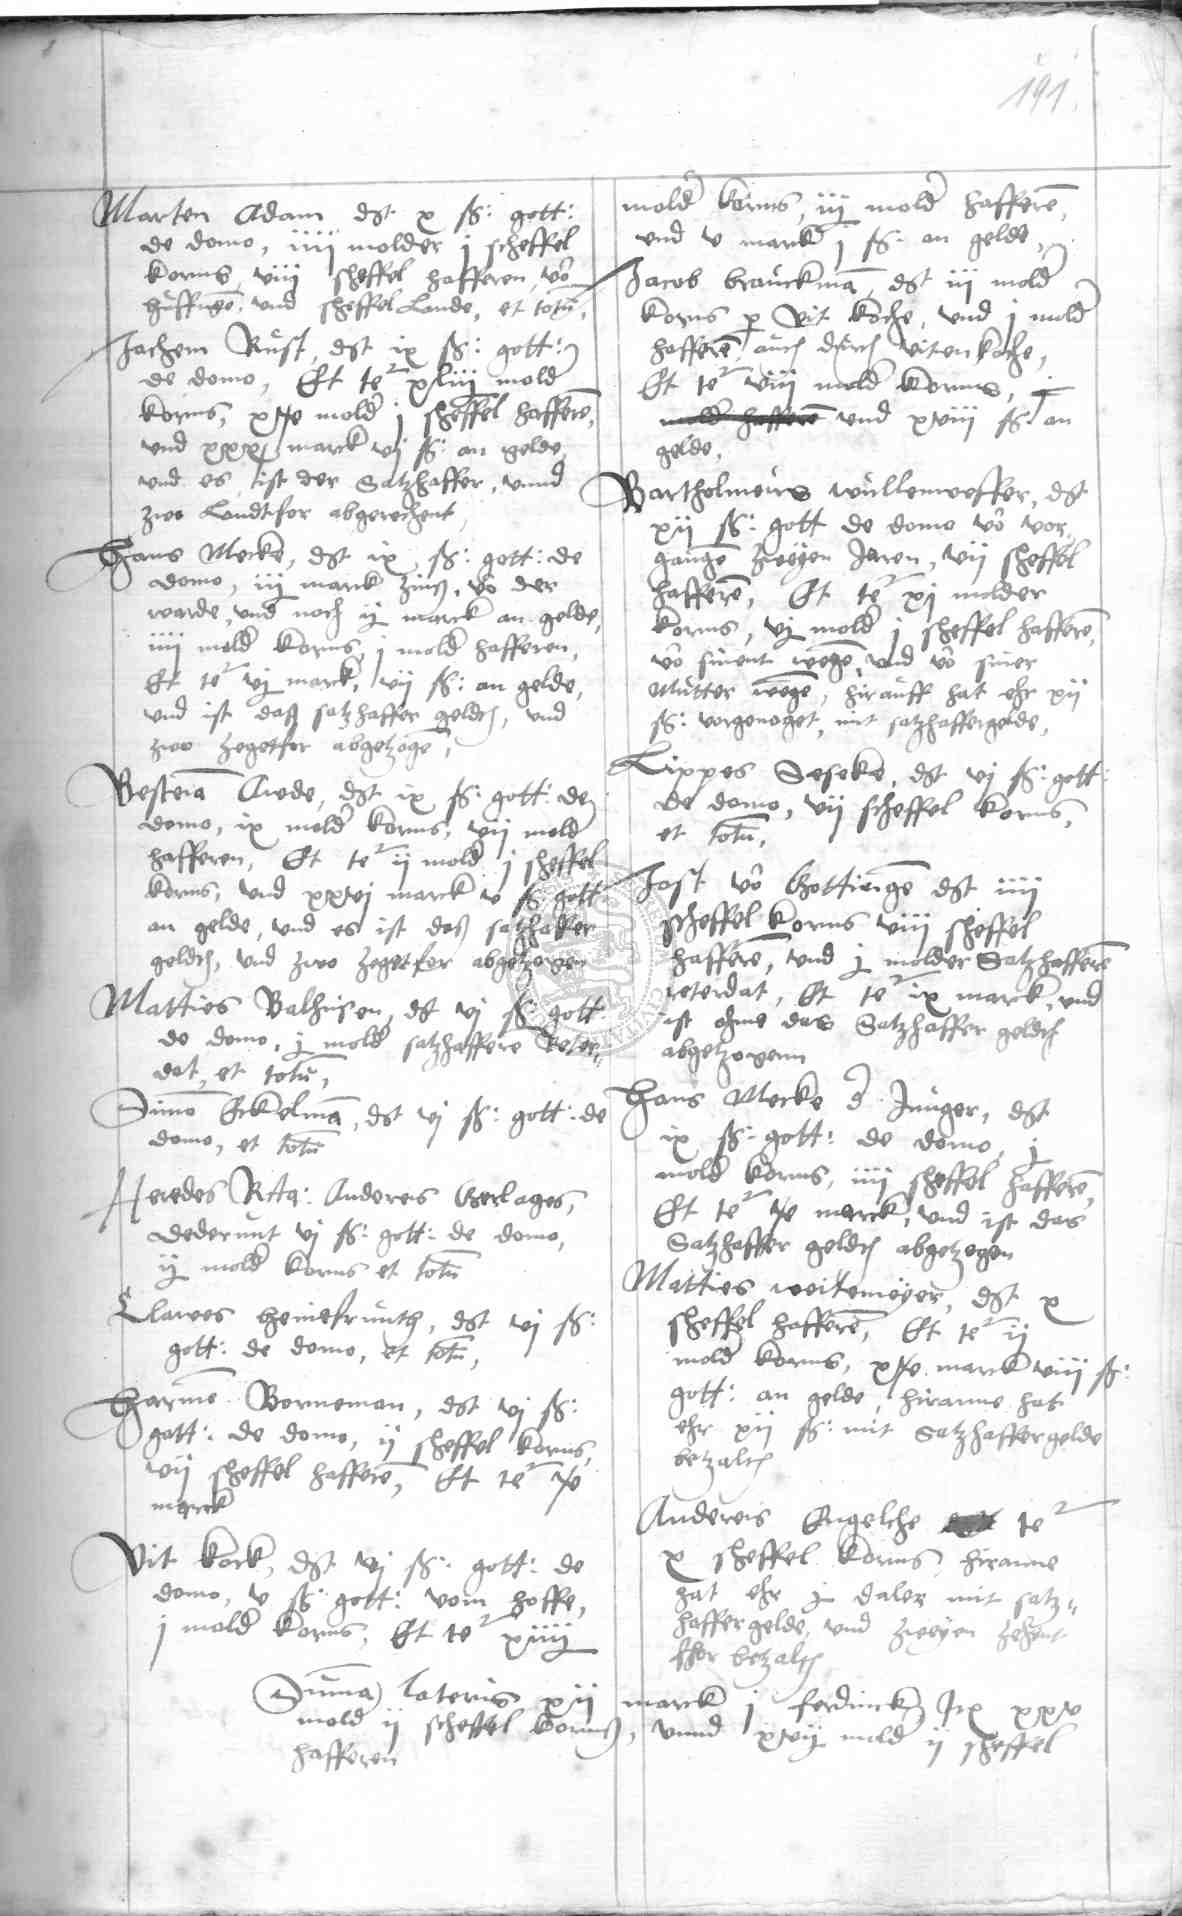 191
Marten Adam dt x ß: gott:
de domo, iiii molder j scheffel
korns, viij scheffel hafferen, vō
huffngē, und scheffel Lande, et totū,
Jachem Rust, dt ix ß: gott:
de domo, Et te² xliij mold
korns, mold j scheffel hafferē,
und xxxj marck vj ß: an gelde,
und es ist der Satzhaffer, unnd
zwo Landtfor abgerechent,
Hans Mecke, dt ix ß: gott: de
domo, iij marck zins, vō der
warde, und noch ij marck an gelde,
iiii mold korns, j mold hafferen,
Et te² vj marck, vij ß: an gelde,
und ist daß satzhaffer geldes, und
zwo zegetfor abgetzogē,
Bestiā Crede, dt ix ß: gott: de
domo, ix mold korns, vij mold
hafferen, Et te² ij mold j scheffel
korns, und xxvj marck v ß gott
an gelde, und es ist daß satzhaffer
geldes, und zwo zegetfor abgetzogen
Matties Balhusen, dt vj ß: gott:
de domo, j mold satzhaffere Reter-
dat, et totū,
Simō Eckelmā, dt vj ß: gott: de
domo, et totū
Heredes Rcta: Andereis Gerlages,
dederunt vj ß: gott: de domo,
ij mold korns et totū
Clawes Heinefruth, dt vj ß:
gott: de domo, et totū,
Harmē Borneman, dt vj ß:
gott: de domo, ij scheffel korns,
vij scheffel hafferē, Et te²
marck
Vit kock, dt vj ß: gott: de
domo, v ß: gott: vom hoffe,
j mold korns, Et te² xiiij
mold korns, iij mold hafferē,
und v marck j ß: an gelde,
Jacob brauckmā, dt iij mold
korns p Vit koche, und j mold
hafferē auch durch viten koche,
Et te² viij mold korns, j
mold hafferē und xviij ß: an
gelde,
Bartholmeus wullenweffer, dt
xij ß: gott de domo vō vor-
gangē zweyen Jaren, vij scheffel
hafferē, Et te² xj molder
korns, vj mold j scheffel hafferē,
vō sinent wegē, und vō siner
Mutter wegē, hirauff hat ehr xij
ß: vorgenoget, mit satzhaffergelde,
Lippes Deseke, dt vj ß: gott:
de domo, vij scheffel korns,
et totū,
Jost vō Gottingē dt iiii
scheffel korns viij scheffel
hafferē, und j molder Satzhafferē
reterdat, Et te² ix marck, und
ist ohme das Satzhaffer geldes
abgetzogenn
Hans Mecke d Junger, dt
ix ß: gott: de domo, j
mold korns, iiii scheffel hafferē,
Et te² marck, und ist das
Satzhaffer geldes abgetzogen
Matties weitemeyer, dt x
scheffel hafferē, Et te² ij
mold korns, marck viij ß:
gott: an gelde, hiranne hat
ehr xij ß: mit Satzhaffergelde
betzalet
Andereis Engelche te²
x scheffel korns, hiranne
hat ehr j daler mit satz-
haffergelde, und zweyen zehent
fhor betzalet
Suma lateris xij marck j ferdinck Jtx xxxv
mold ij scheffel korns, unnd xvij mold ij scheffel
hafferen